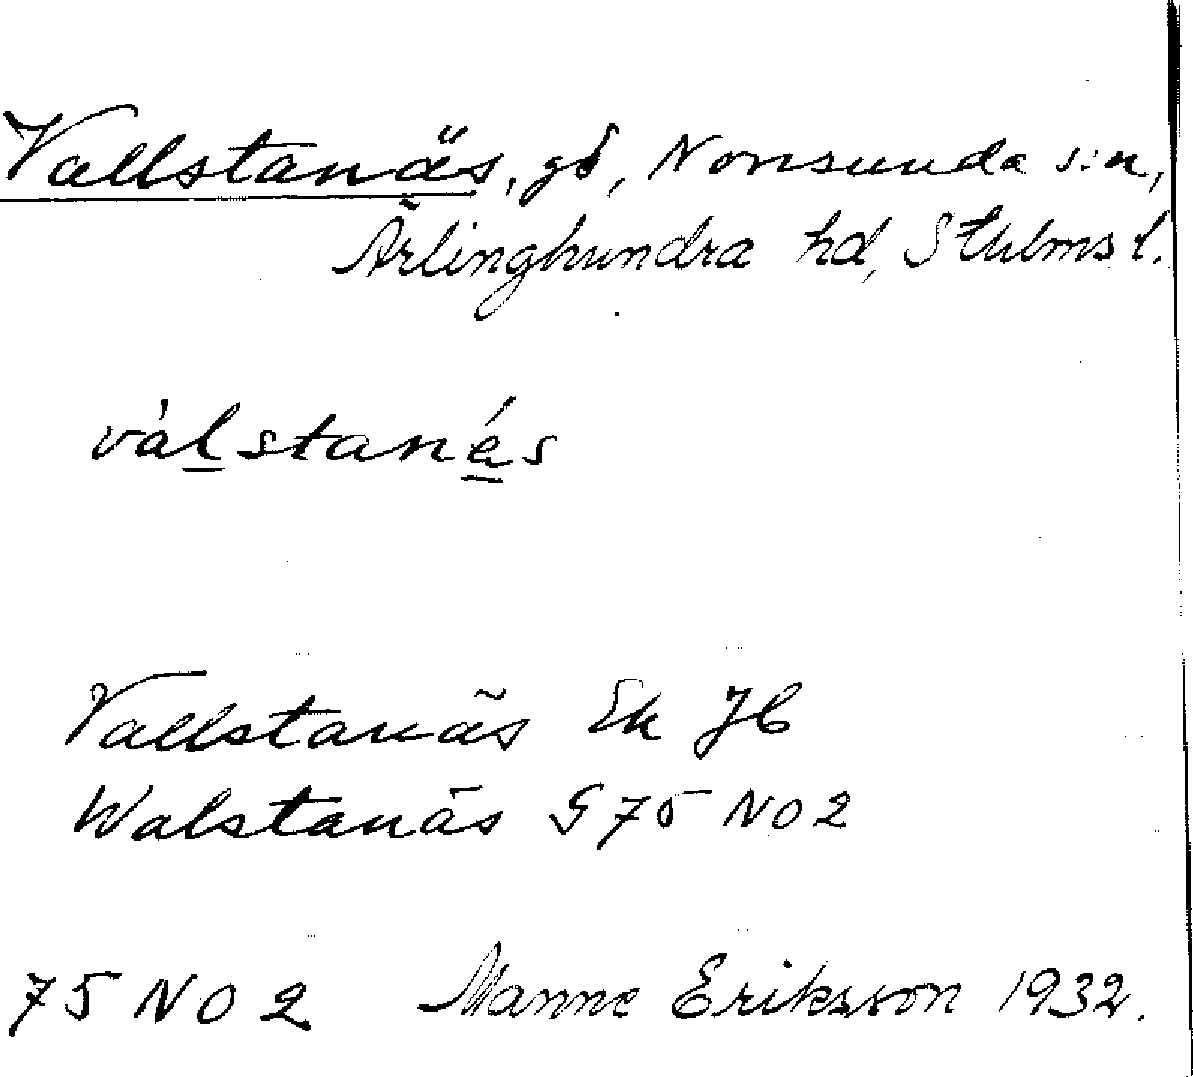 Vallstanäs, gd, Norrsunda s:n,
Ärlinghundra hd, Sthlms l.
válstanás
Vallstanäs Ek JB
Walstanäs G 75 NO 2
75 NO 2 Manne Eriksson 1932.